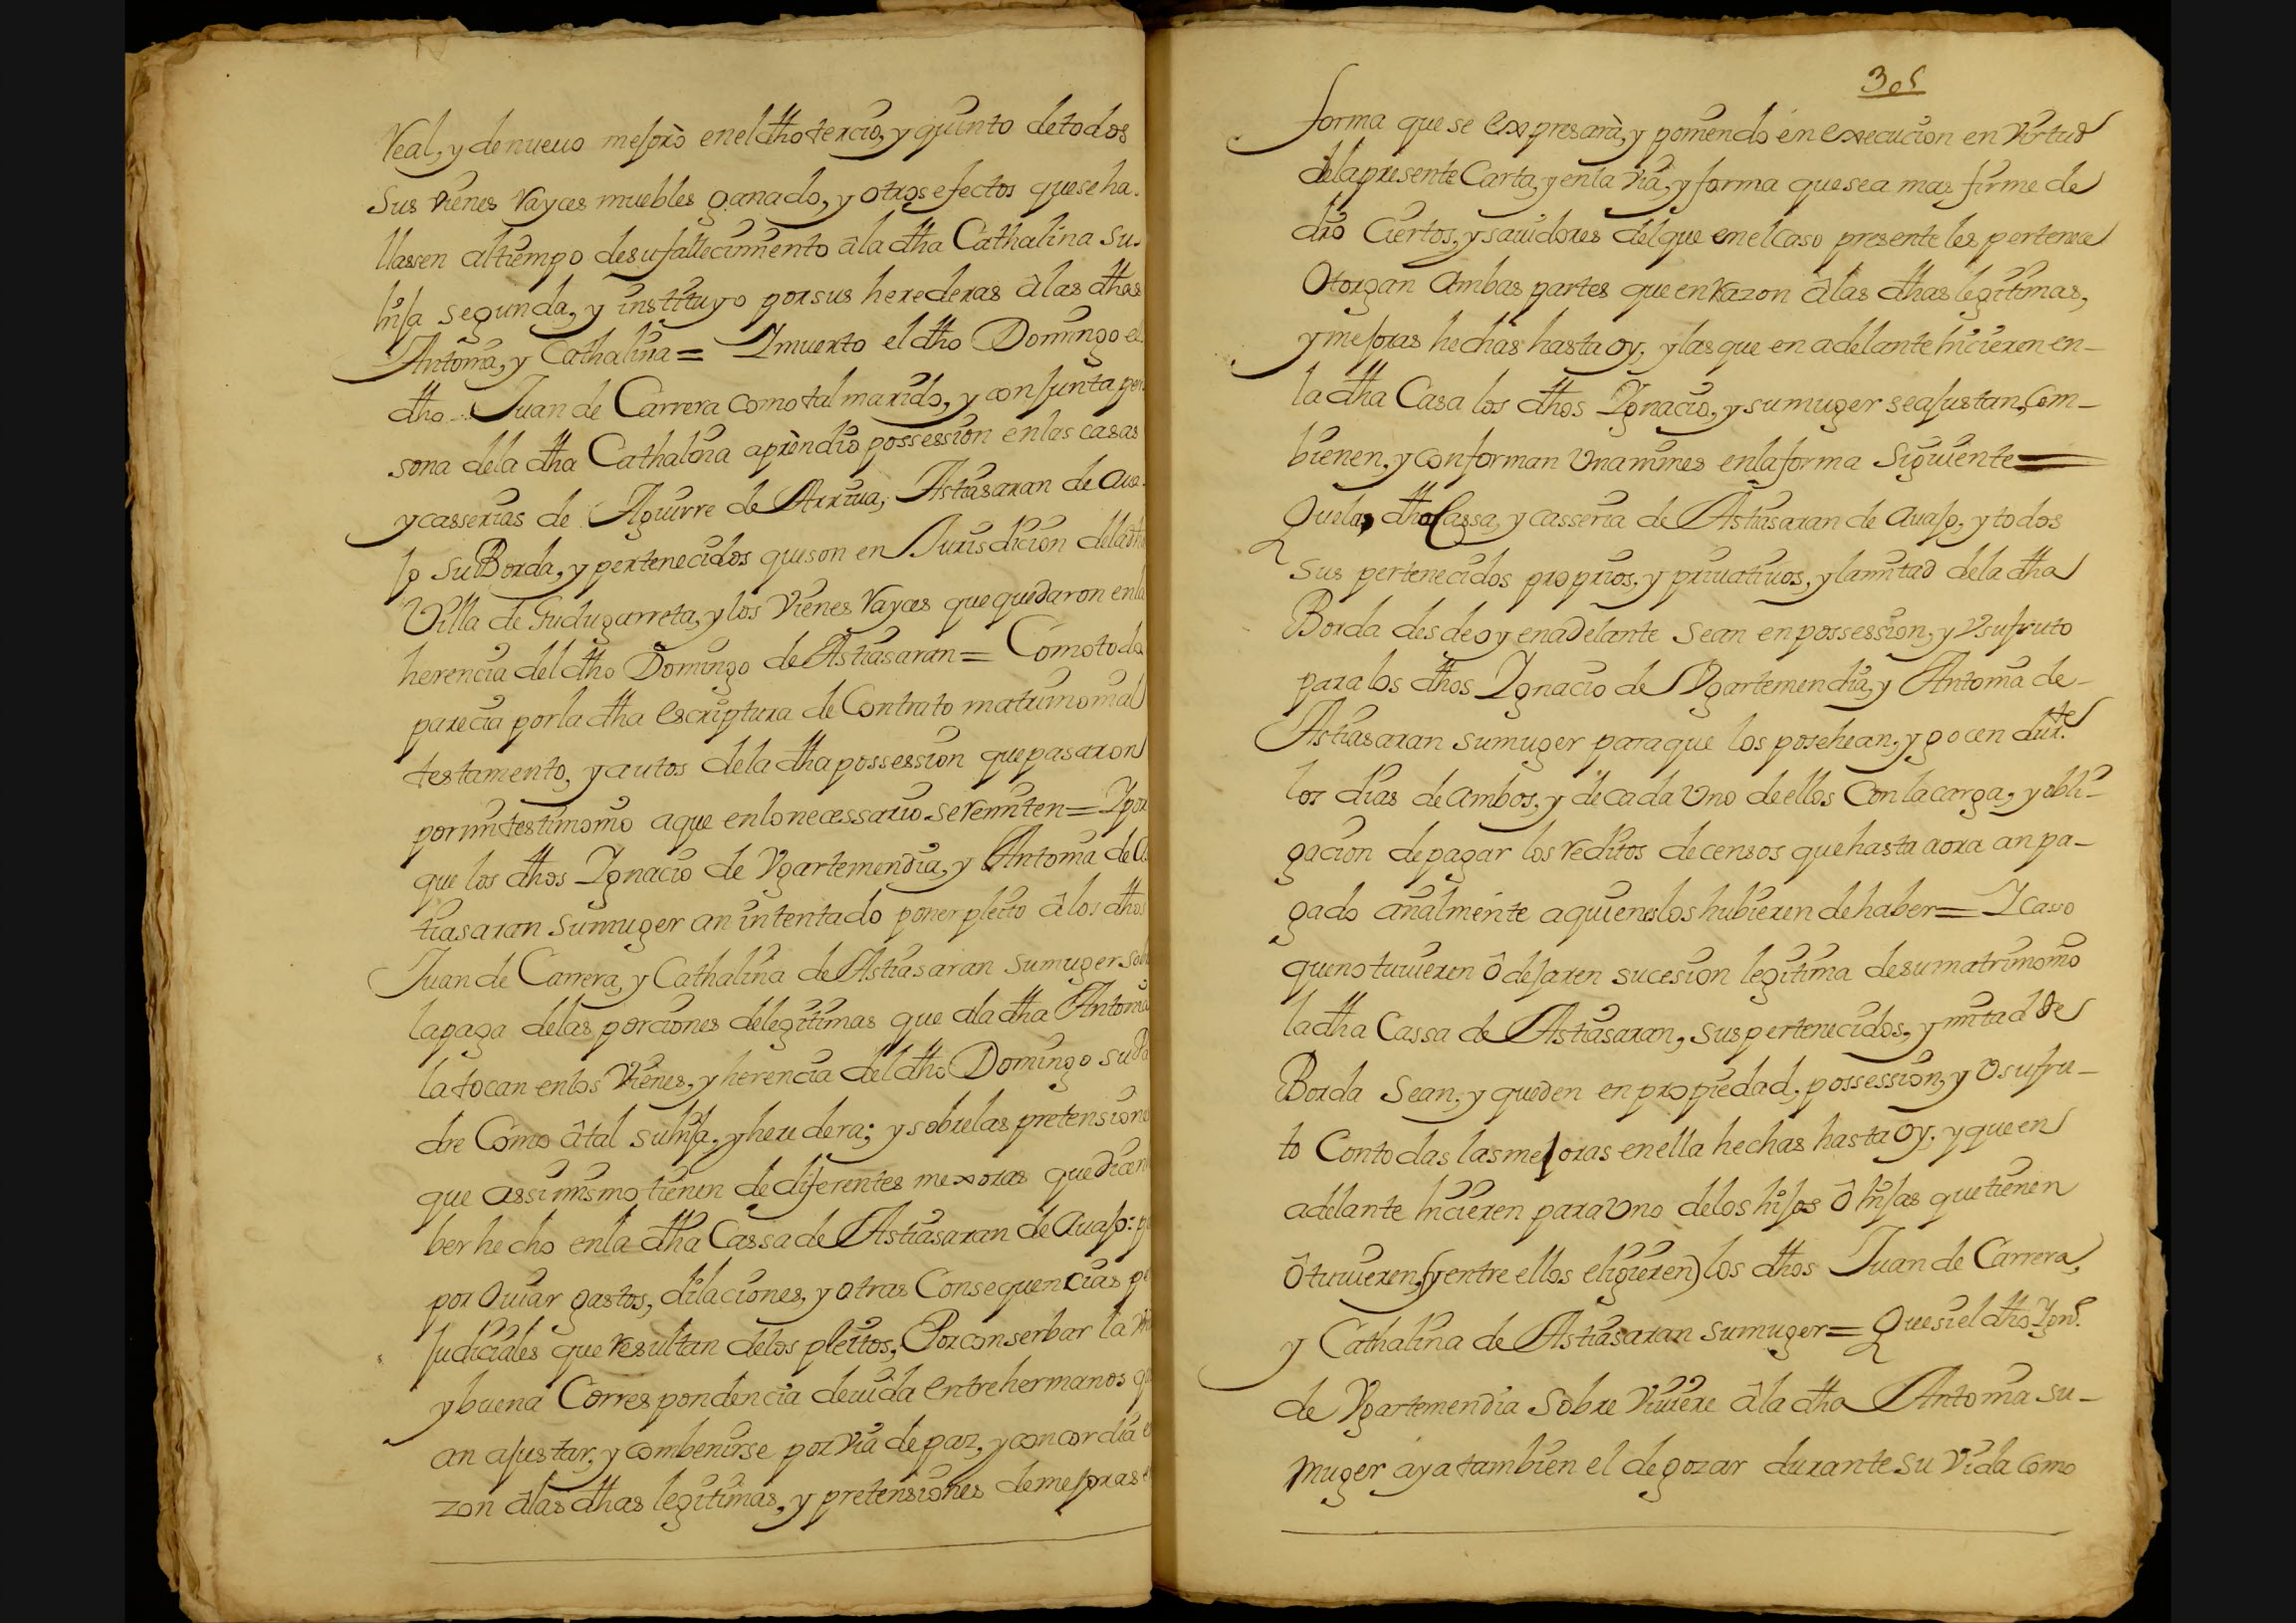 Real, y de nueuo mejorò en el dho tercio, y quinto de todos
sus vienes rayces muebles ganado, y otros efectos que se ha-
llassen al tiempo de su fallecimiento â la dha Cathalina su
hija segunda, y instituyo por sus herederas â las dhas
Antonia, y Cathalina = I muerto el dho Domingo el
dho Juan de Carrera como tal marido, y conjunta per
sona de la dha Cathalina aprèndio possession en las casas
y casserias de Aguirre de Arriua, Astiasaran de aua
jo su Borda, y pertenecidos que son en Jurisdicion de la dha
Villa de Gudugarreta, y los vienes rayces que quedaron en la
herencia del dho Domingo de Astiasaran = Como todo
parecia por la dha escriptura de Contrato matrimonial
testamento, y autos de la dha possession que pasaron
por mi testimonio a que en lo necessario se remiten = I por
que los dhos Ignacio de Vgartemendia, y Antonia de As
tiasaran su muger an intentado poner pleito â los dhos
Juan de Carrera, y Cathalina de Astiasaran su muger sob
la paga de las porciones de legitimas que a la dha Antonia
la tocan en los vienes, y herencia del dho Domingo su Pa
dre Como â tal su hija, y heredera; y sobre las pretensiones
que assimismo tienen de diferentes mexoras que dicen
ber hecho en la dha Cassa de Astiasaran de auajo: p
por Ouiar gastos, dilaciones, y otras Consequencias pe
judiciales que resultan de los pleitos, Por conserbar la
y buena Correspondencia deuida entre hermanos q
an ajustar, y combenirse por via de paz, y concordia
zon â las dhas legitimas, y pretensiones de mejoras
305
forma que se expresarà, y poniendo en execucion en virtud
de la presente Carta, y en la via, y forma que sea mas firme de
dro Ciertos, y sauidores del que en el caso presente les pertenece
Otorgan ambas partes que en razon â las dhas legitimas,
y mejoras hechas hasta oy, y las que en adelante hicieren en-
la dha Casa los dhos Ignacio, y su muger se ajustan, com-
bienen, y conforman Vnanimes en la forma siguiente =
Que la dha Cassa, y casseria de Astiasaran de auajo, y todos
sus pertenecidos proprios, y priuatiuos, y la mitad de la dha
Borda desde oy en adelante sean en possession, y Vsufruto
para los dhos Ignacio de Vgartemendia, y Antonia de-
Astiasaran su muger para que los posehean, y gocen durte
los dias de ambos, y de cada Vno de ellos Con la carga, y obli-
gacion de pagar los reditos de censos que hasta aora an pa-
gado añalmente a quienes los hubieren de haber = I caso
que no tuuieren ô dejaren sucesion legitima de su matrimonio
la dha Cassa de Astiasaran, sus pertenecidos, y mitad de
Borda sean, y queden en propiedad, possession, y Vsufru-
to Con todas las mejoras en ella hechas hasta oy, y que en
adelante hicieren para Vno de los hijos ô hijas que tienen
ô tuuieren, (y entre ellos eligieren) los dhos Juan de Carrera,
y Cathalina de Astiasaran su muger = Que si el dho Igno
de Vgartemendia sobre viuiere â la dha Antonia su-
muger aya tambien el de gozar durante su vida como